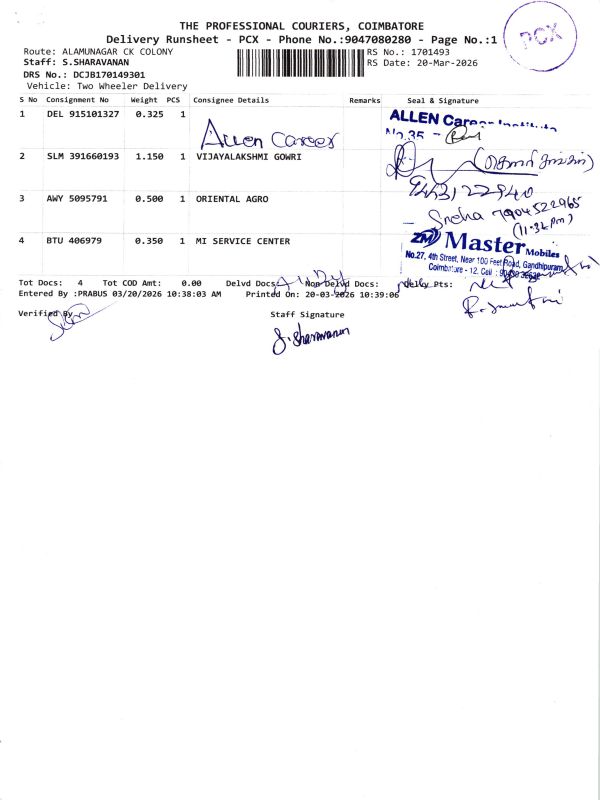 THE PROFESSIONAL COURIERS, COIMBATORE
Delivery Runsheet - PCX - Phone No.:9047080280 - Page No.:1
PCX
Route: ALAMUNAGAR CK COLONY
RS No.: 1701493
Staff: S.SHARAVANAN
RS Date: 20-Mar-2026
DRS No.: DCJB170149301
Vehicle: Two Wheeler Delivery
S No Consignment No Weight PCS Consignee Details Remarks Seal & Signature
1 DEL 915101327 0.325 1
Allen Career
ALLEN Career
No.35
2 SLM 391660193 1.150 1 VIJAYALAKSHMI GOWRI
9443122940
3 AWY 5095791 0.500 1 ORIENTAL AGRO
Sneha 7904522965
(11.32 pm)
4 BTU 406979 0.350 1 MI SERVICE CENTER
ZM Master Mobiles
No.27, 4th Street, Near 100 Feet Road, Gandhipuram,
Coimbatore - 12. Cell :
Tot Docs: 4 Tot COD Amt: 0.00 Delvd Docs: Non Delvd Docs: Delay Pts:
Entered By :PRABUS 03/20/2026 10:38:03 AM Printed On: 20-03-2026 10:39:06
Verified By
Staff Signature
S. Sharavanan